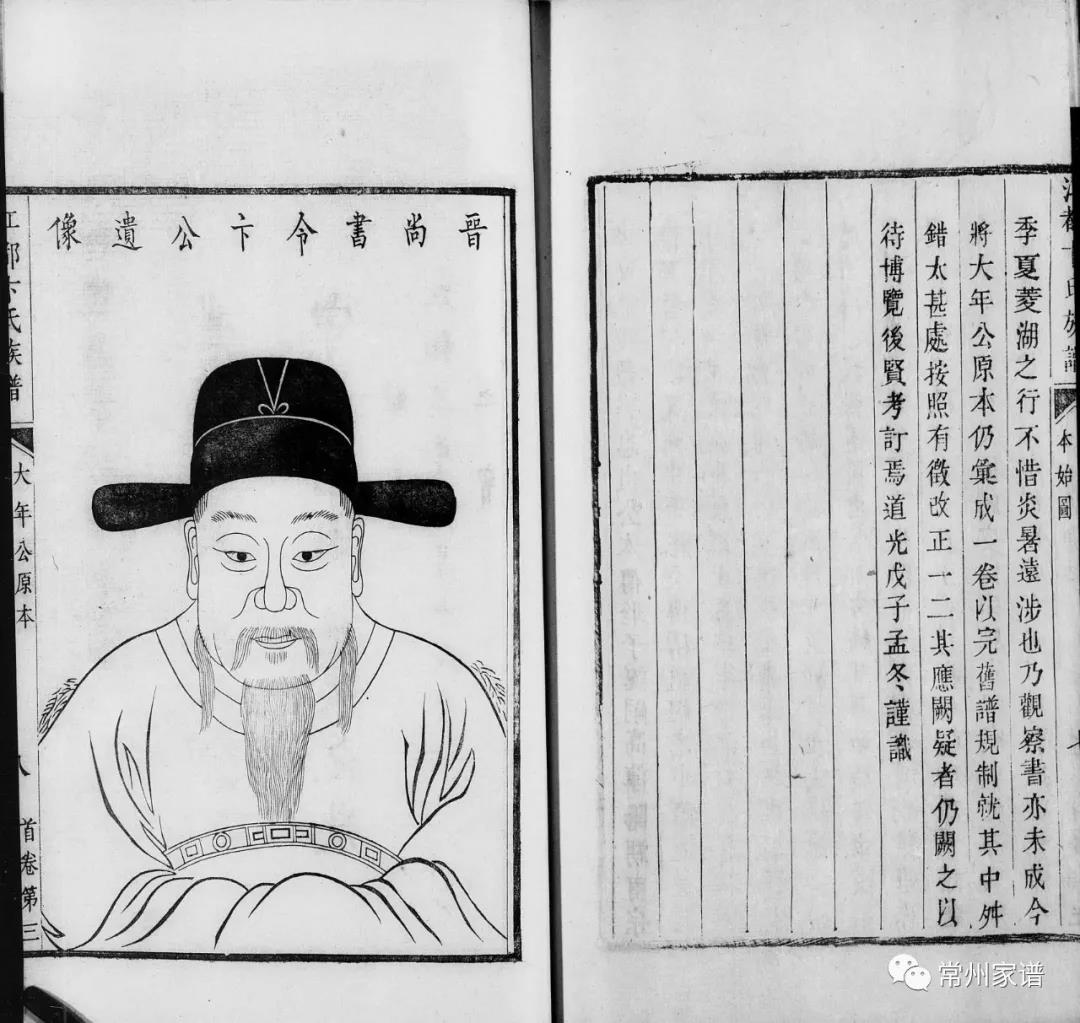 江都卞氏族譜
本始圖
季夏菱湖之行不惜炎暑遠涉也乃觀察書亦未成今
將大年公原本仍彙成一卷以完舊譜規制就其中舛
錯太甚處按照有徵改正一二其應闕疑者仍闕之以
待博覽後賢考訂焉道光戊子孟冬謹識
晋尚書令卞公遺像
江都卞氏族譜
大年公原本
八
首卷第三
常州家谱